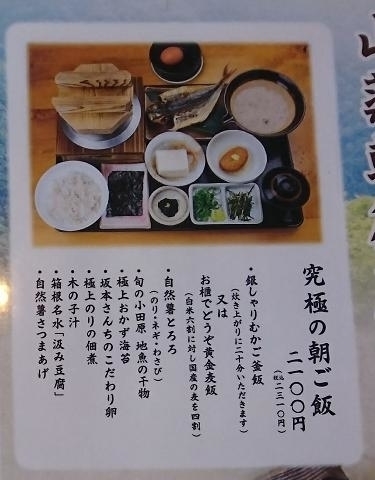 究極の朝ご飯
二一〇〇円
(税込二三一〇円)
・銀しゃりむかご釜飯
(炊き上がりに二十分いただきます)
又は
お櫃でどうぞ黄金麦飯
(白米六割に対し国産の麦を四割)
・自然薯とろろ
(のり・ネギ・わさび)
・旬の小田原 地魚の干物
・極上おかず海苔
・坂本さんちのこだわり卵
・極上のりの佃煮
・木の子汁
・箱根名水「汲み豆腐」
・自然薯さつまあげ